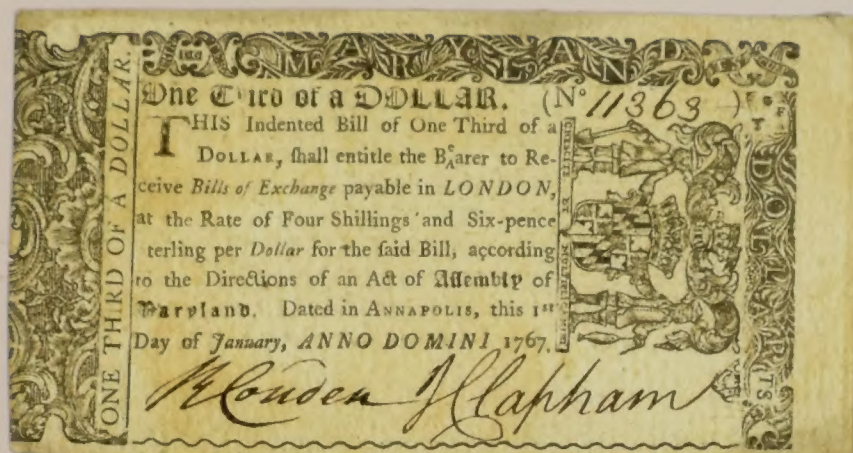 MARYLAND
One Third of a DOLLAR. (No 11363)
THIS Indented Bill of One Third of a
DOLLAR, ſhall entitle the Bearer to Re-
ceive Bills of Exchange payable in LONDON,
at the Rate of Four Shillings and Six-pence
terling per Dollar for the ſaid Bill, according
to the Directions of an Act of Aſſembly of
Maryland. Dated in ANNAPOLIS, this 1st
Day of January, ANNO DOMINI 1767.
R Couden J Clapham
ONE THIRD OF A DOLLAR.
CRESCITE ET MULTIPLICAMINI